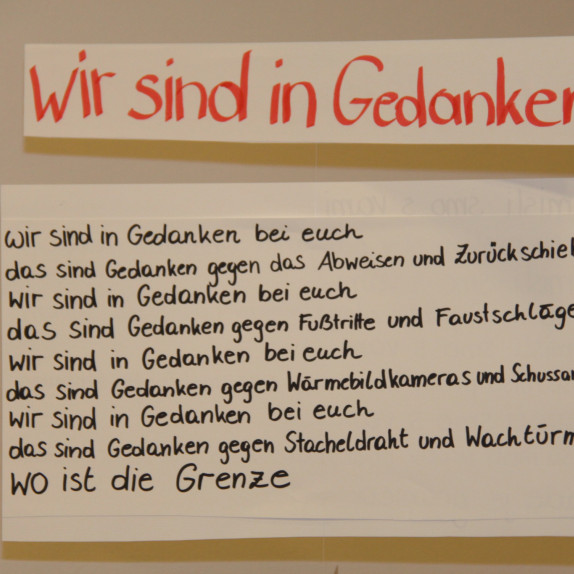 Wir sind in Gedanken
wir sind in Gedanken bei euch
das sind Gedanken gegen das Abweisen und Zurückschie
wir sind in Gedanken bei euch
das sind Gedanken gegen Fußtritte und Faustschläge
wir sind in Gedanken bei euch
das sind Gedanken gegen Wärmebildkameras und Schussa
wir sind in Gedanken bei euch
das sind Gedanken gegen Stacheldraht und Wachtürm
wo ist die Grenze